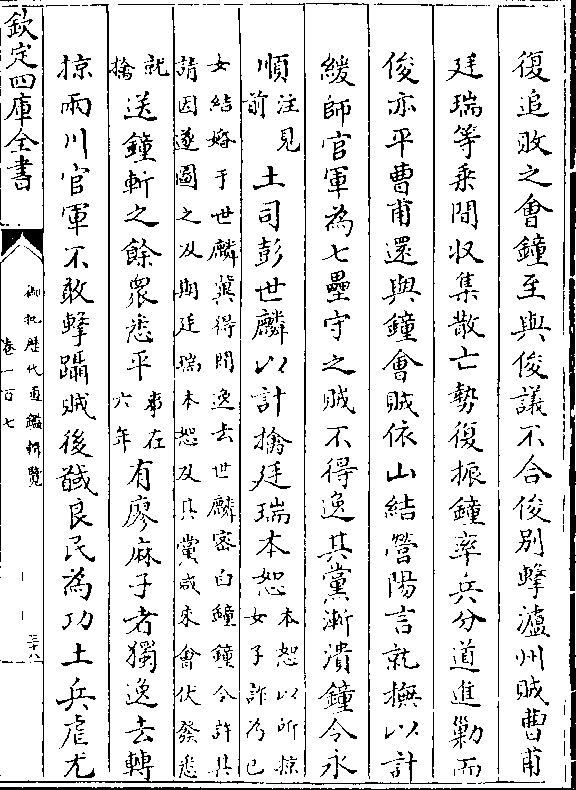 復追敗之會鐘至與俊議不合俊别擊瀘州賊曹甫
廷瑞等乗間収集散亡勢復振鐘率兵分道進勦而
俊亦平曹甫還與鐘會賊依山結營陽言就撫以計
緩師官軍為七壘守之賊不得逸其黨漸潰鐘令永
順注見前土司彭世麟以計擒廷瑞本恕本恕以所掠女子詐為己
女結婚于世麟冀得間逸去世麟密白鐘鐘令許其
請因遂圖之及期廷瑞本恕及其黨咸來會伏發悉
就擒送鐘斬之餘衆悉平事在六年有廖麻子者獨逸去轉
掠兩川官軍不敢擊躡賊後馘良民為功土兵虐尤
欽定四庫全書
御批歴代通鑑輯覽
卷一百七
三十八